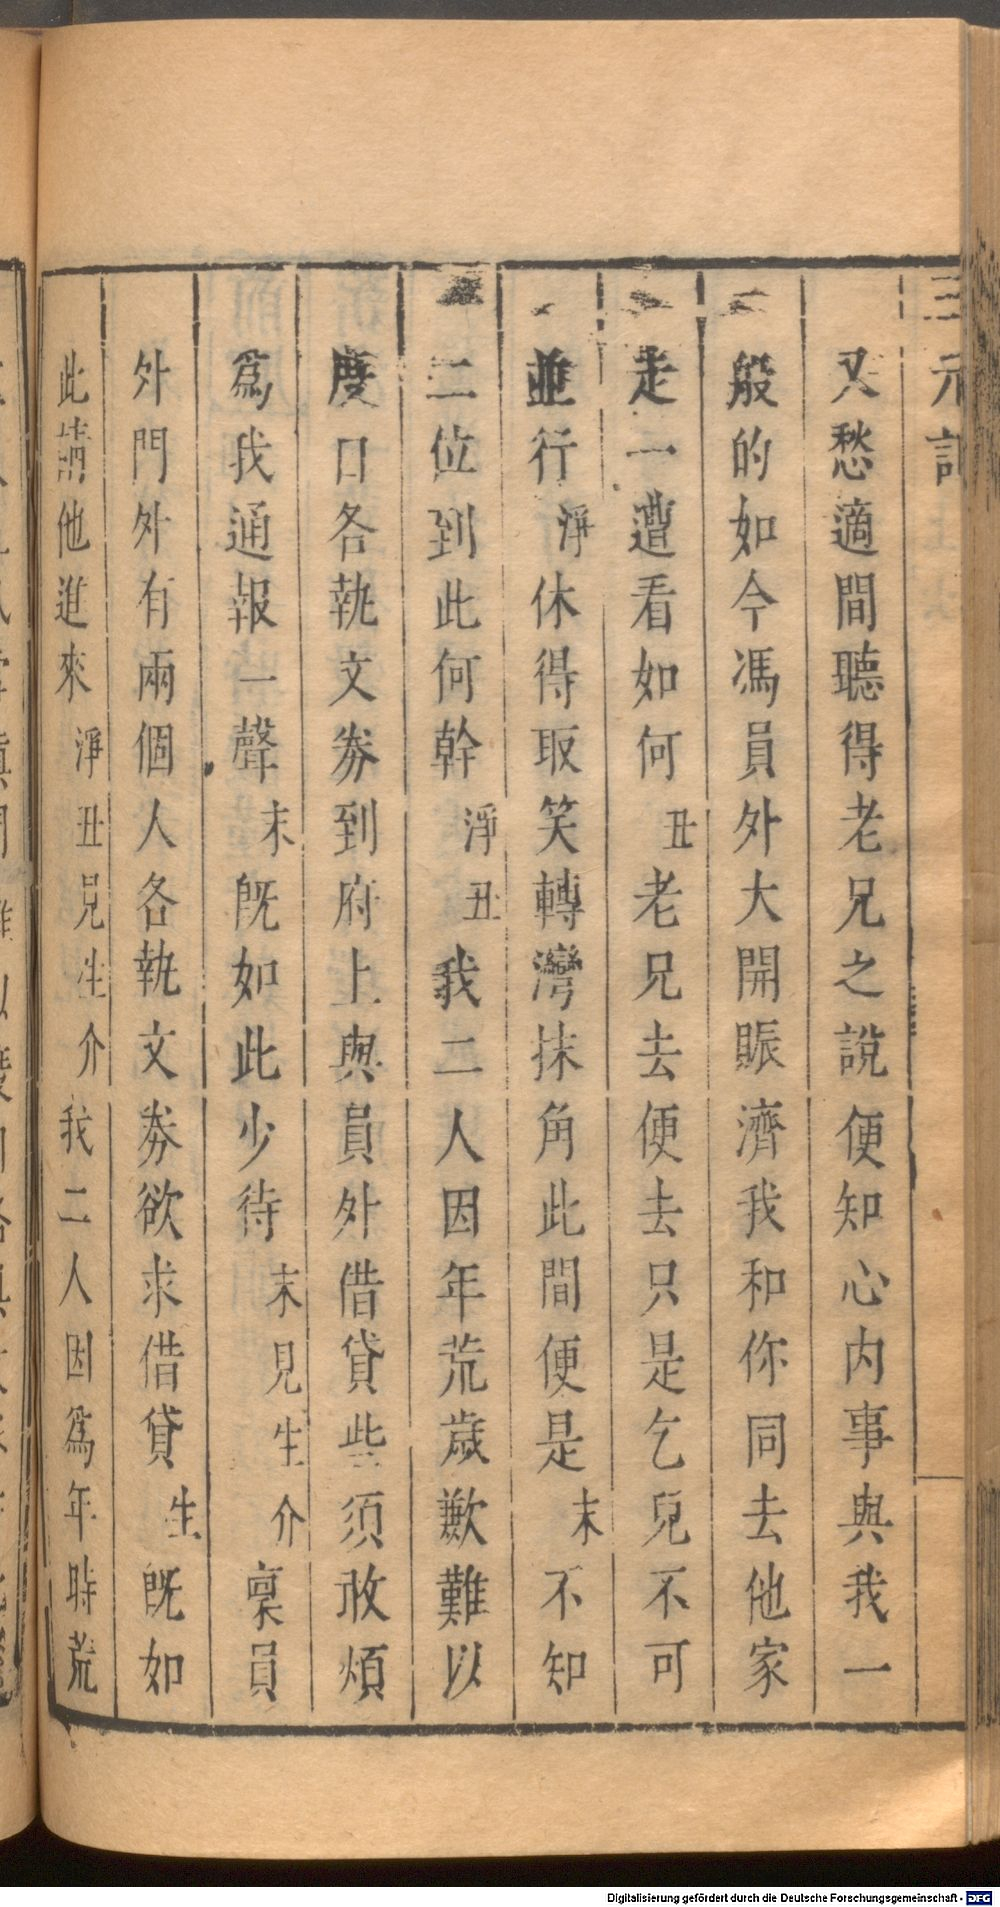 三元記
又愁適間聽得老兄之說便知心內事與我一
般的如今馮員外大開賑濟我和你同去他家
走一遭看如何丑老兄去便去只是乞兒不可
並行淨休得取笑轉灣抹角此間便是末不知
二位到此何幹淨丑我二人因年荒歲歉難以
度口各執文券到府上與員外借貸些須敢煩
為我通報一聲末既如此少待末見生介稟員
外門外有兩個人各執文券欲求借貸生既如
此請他進來淨丑見生介我二人因為年時荒
Digitalisierung gefördert durch die Deutsche Forschungsgemeinschaft - DFG